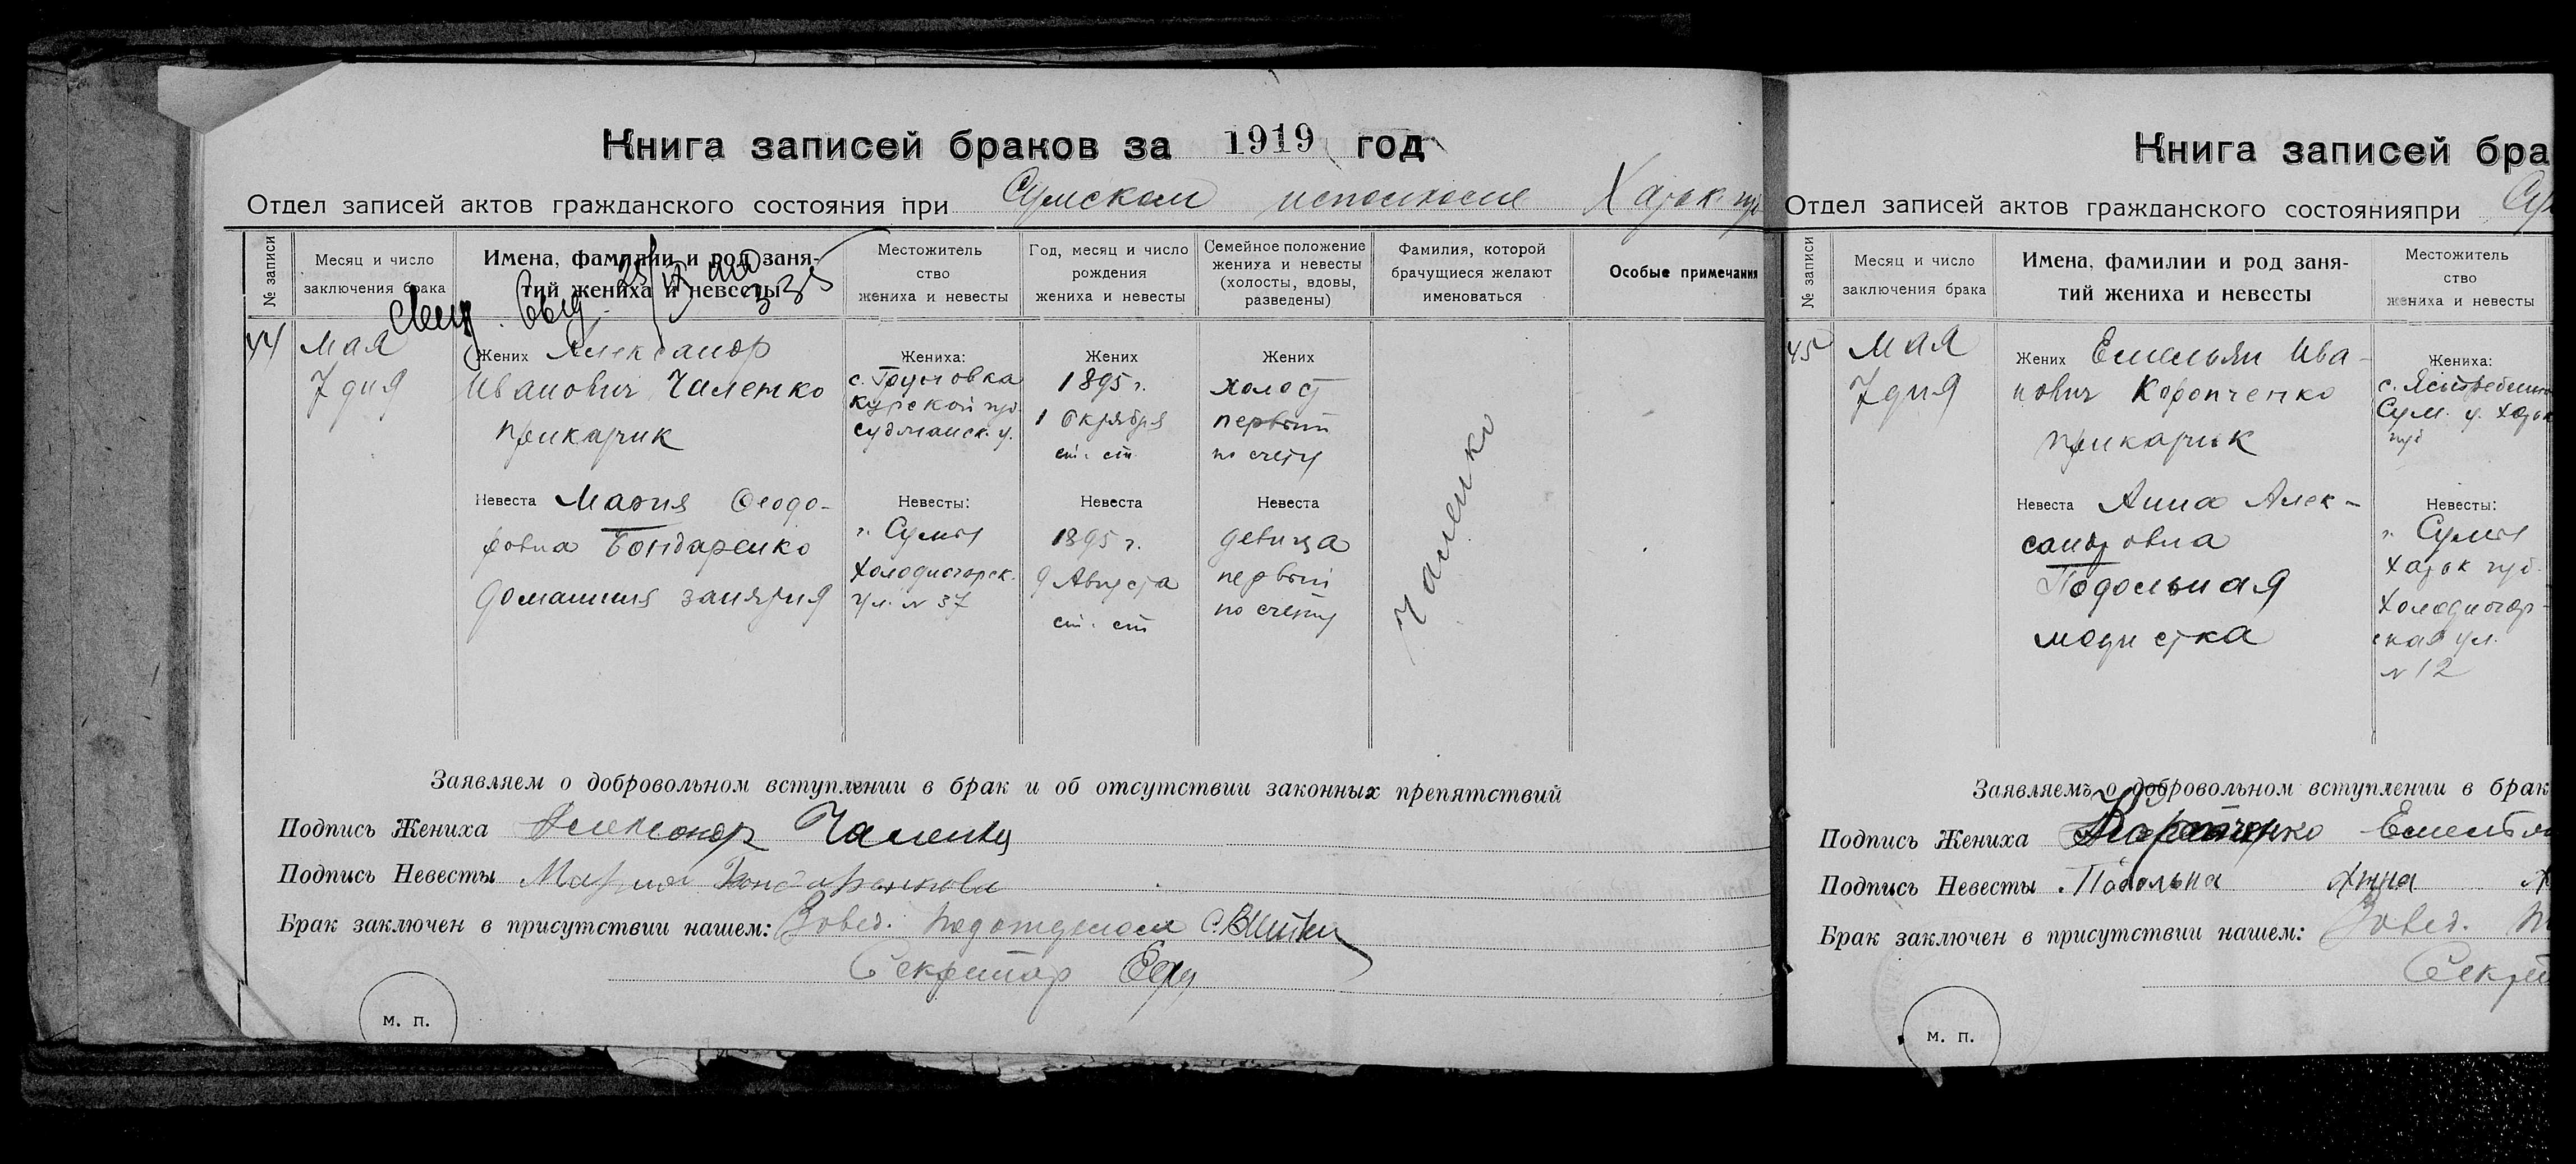 Книга записей браков за 1919 год
Отдел записей актов гражданского состояния при Сумском исполкоме Харьк. губ
№ записи
Месяц и число заключения брака
Имена, фамилии и род занятий жениха и невесты
Местожительство жениха и невесты
Год, месяц и число рождения жениха и невесты
Семейное положение жениха и невесты (холосты, вдовы, разведены)
Фамилия, которой брачущиеся желают именоваться
Особые примечания
44
Мая
7 дня
Жених Александр
Иванович Чаленко
приказчик
Невеста Мария Феодо-
ровна Бондаренко
домашния занятия
Жениха:
с. Груновка
Курской губ.
Суджанск. у.
Невесты:
г. Сумы
Холодногорск.
ул. № 37
Жених
1895 г.
1 Октября
ст. ст.
Невеста
1895 г.
9 Августа
ст. ст
Жених
холост
первый
по счету
Невеста
девица
первый
по счету
Чаленко
Заявляем о добровольном вступлении в брак и об отсутствии законных препятствий
Подпись Жениха Александр Чаленко
Подпись Невесты Мария Бондаренкова
Брак заключен в присутствии нашем: Завед. подотделом
Секретар
м. п.
Книга записей бра
Отдел записей актов гражданского состоянияпри Су
№ записи
Месяц и число заключения брака
Имена, фамилии и род занятий жениха и невесты
Местожительство жениха и невесты
45
Мая
7 дня
Жених Емельян Ива-
нович Коропченко
приказчик
Невеста Анна Алек-
сандровна
Подольная
модистка
Жениха:
Сум. у. Харьк
губ
Невесты:
г. Сумы
Харьк губ.
Холодногор-
ская ул.
№ 12
Заявляемъ о добровольном вступлении в брак
Подпись Жениха Коропченко Емельян
Подпись Невесты Подольна Анна А
Брак заключен в присутствии нашем: Завед. п
Секрет
м. п.